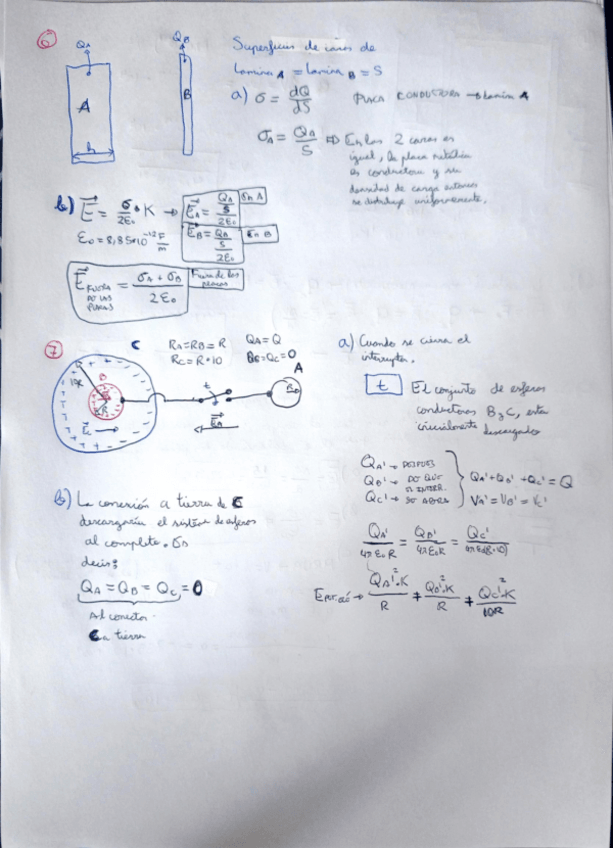 6
QA
QB
A
B
h
Superficies de caras de
Lamina A = Lamina B = S
a) σ = dQ/dS
PLACA CONDUCTORA → Lamina A
σA = QA/S ⇒ En las 2 caras es
igual, la placa metálica
es conductora y su
densidad de carga
se distribuye uniformemente.
b) E = σ/2ε₀ · K →
EA = QA/S/2ε₀ En A
EB = QA/S/2ε₀ En B
ε₀ = 8,85·10⁻¹² F/m
E FUERA DE LAS PLACAS = σA + σB / 2ε₀
Fuera de las placas
7
C
RA = RB = R
QA = Q
RC = R·10
QB = QC = 0
A
10R
B
R
t
a) Cuando se cierra el
interruptor.
t
El conjunto de esferas
conductoras B y C, están
inicialmente descargados
QA' → DESPUES
QB' → DE QUE
QC' → SE ABRA
EL INTERR.
QA' + QB' + QC' = Q
VA' = VB' = VC'
QA'/4πε₀R = QB'/4πε₀R = QC'/4πε₀(R·10)
QA'²·K/R + QB'²·K/R + QC'²·K/10R
b) La conexión a tierra de C
descargaría el sistema de esferas
al completo. Es
decir:
QA = QB = QC = 0
Al conectar
C a tierra